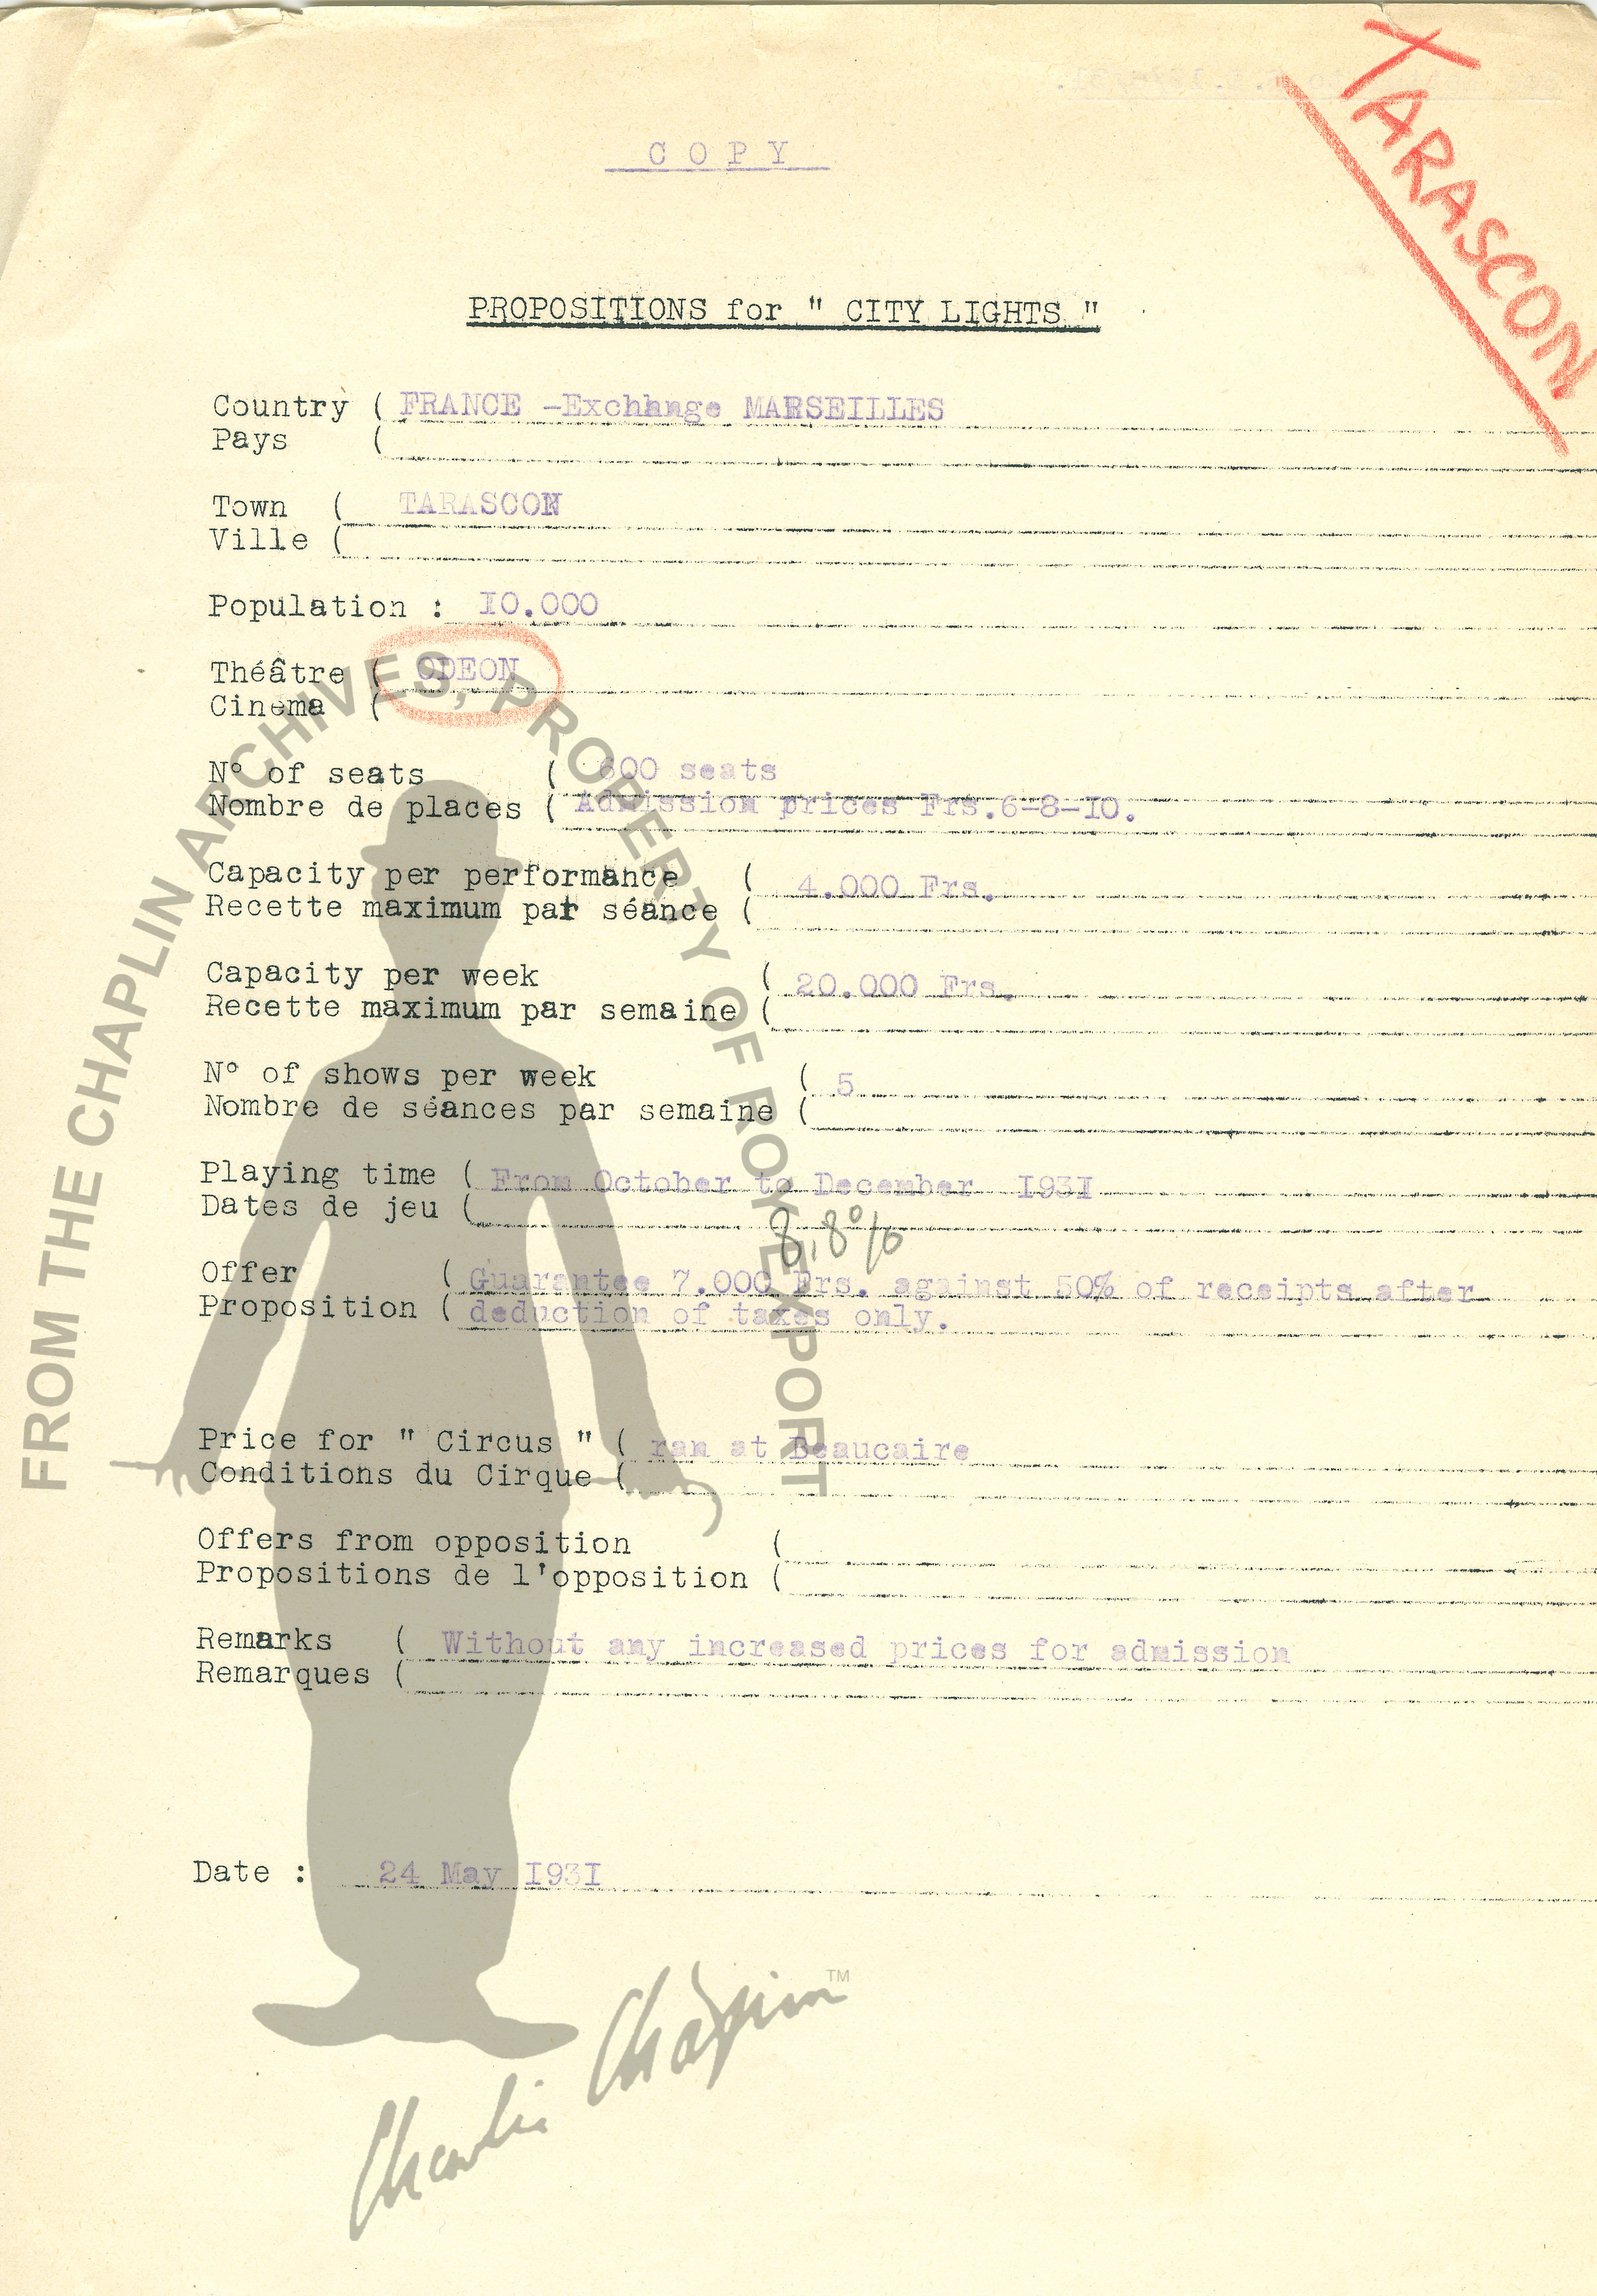 TARASCON
C O P Y
PROPOSITIONS for " CITY LIGHTS "
Country ( FRANCE -Exchhnge MARSEILLES
Pays (
Town ( TARASCON
Ville (
Population : IO.000
Théâtre ( ODEON
Cinema (
N° of seats ( 600 seats
Nombre de places ( Admission prices Frs.6-8-IO.
Capacity per performance ( 4.000 Frs.
Recette maximum par séance (
Capacity per week ( 20.000 Frs.
Recette maximum par semaine (
N° of shows per week ( 5
Nombre de séances par semaine (
Playing time ( From October to December I93I
Dates de jeu (
8,8%
Offer ( Guarantee 7.000 Frs. against 50% of receipts after
Proposition ( deduction of taxes only.
Price for " Circus " ( ran at Beaucaire
Conditions du Cirque (
Offers from opposition (
Propositions de l'opposition (
Remarks ( Without any increased prices for admission
Remarques (
Date : 24 May I93I
FROM THE CHAPLIN ARCHIVES, PROPERTY OF ROY EXPORT
Charlie Chaplin TM